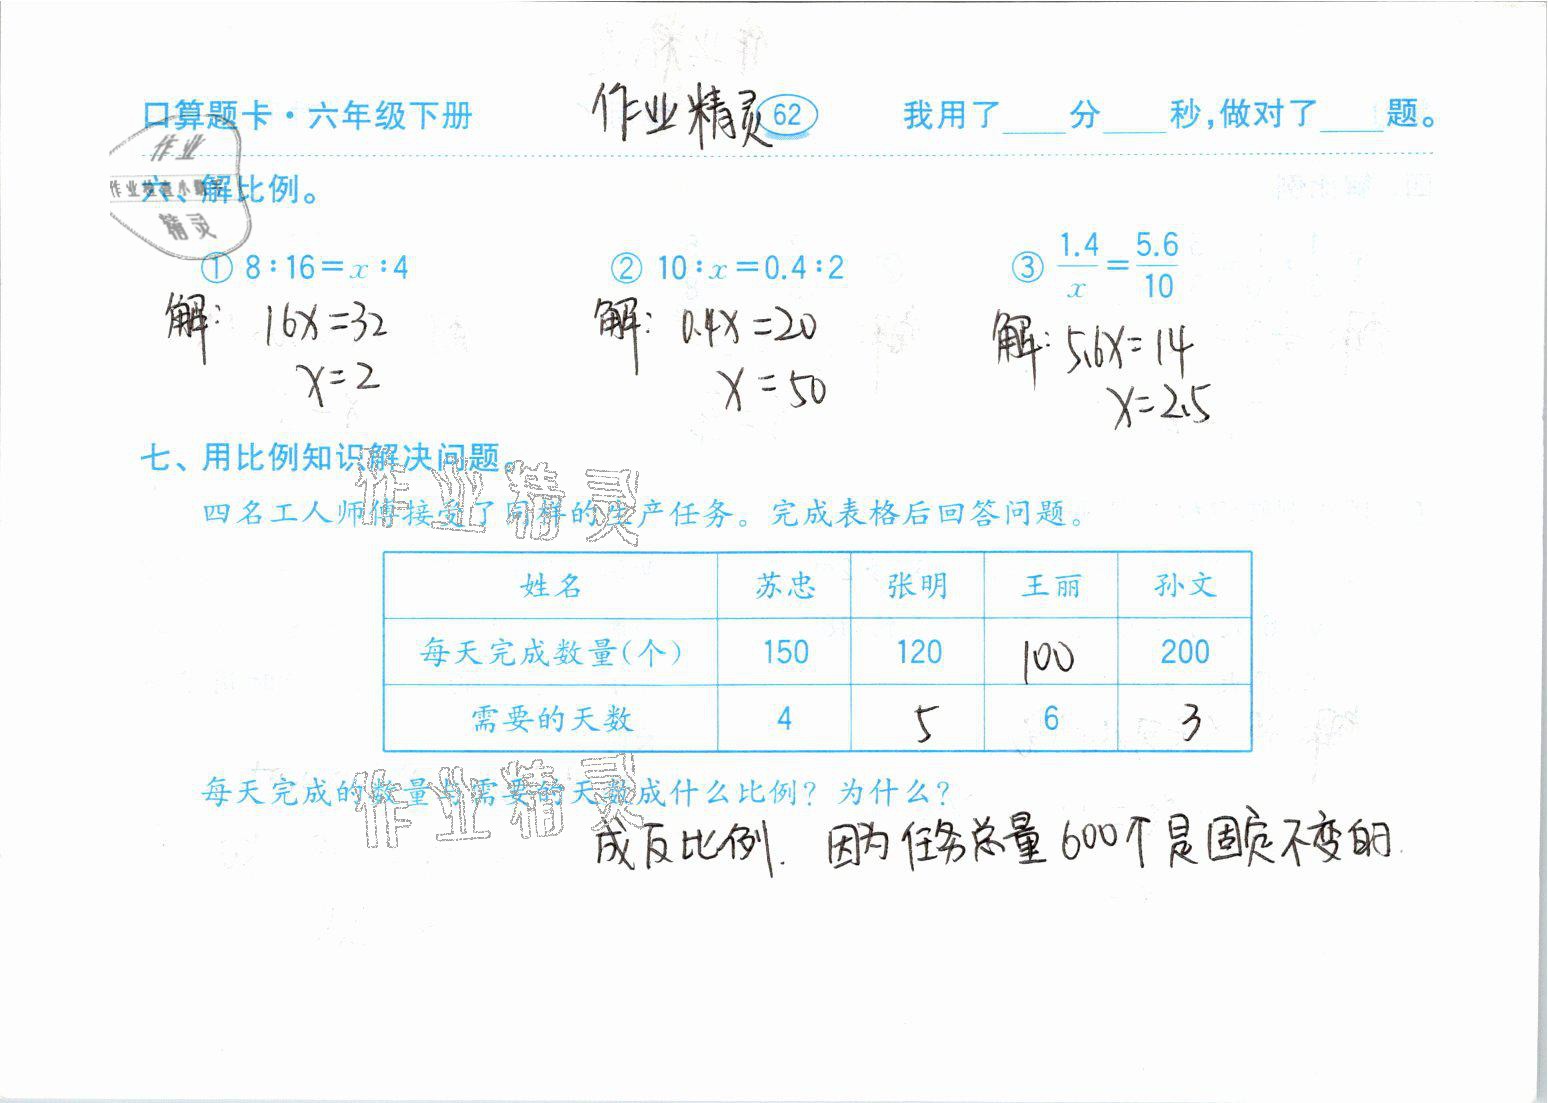 口算题卡·六年级下册 作业精灵 62 我用了____分____秒,做对了____题。
作业
作业检查小助手
精灵
六、解比例。
① 8:16=x:4 ② 10:x=0.4:2 ③ 1.4/x=5.6/10
解: 16x=32 解: 0.4x=20 解: 5.6x=14
x=2 x=50 x=2.5
七、用比例知识解决问题。
作业精灵
四名工人师傅接受了同样的生产任务。完成表格后回答问题。
姓名 苏忠 张明 王丽 孙文
每天完成数量(个) 150 120 100 200
需要的天数 4 5 6 3
每天完成的数量与需要的天数成什么比例?为什么?
作业精灵
成反比例. 因为任务总量600个是固定不变的.